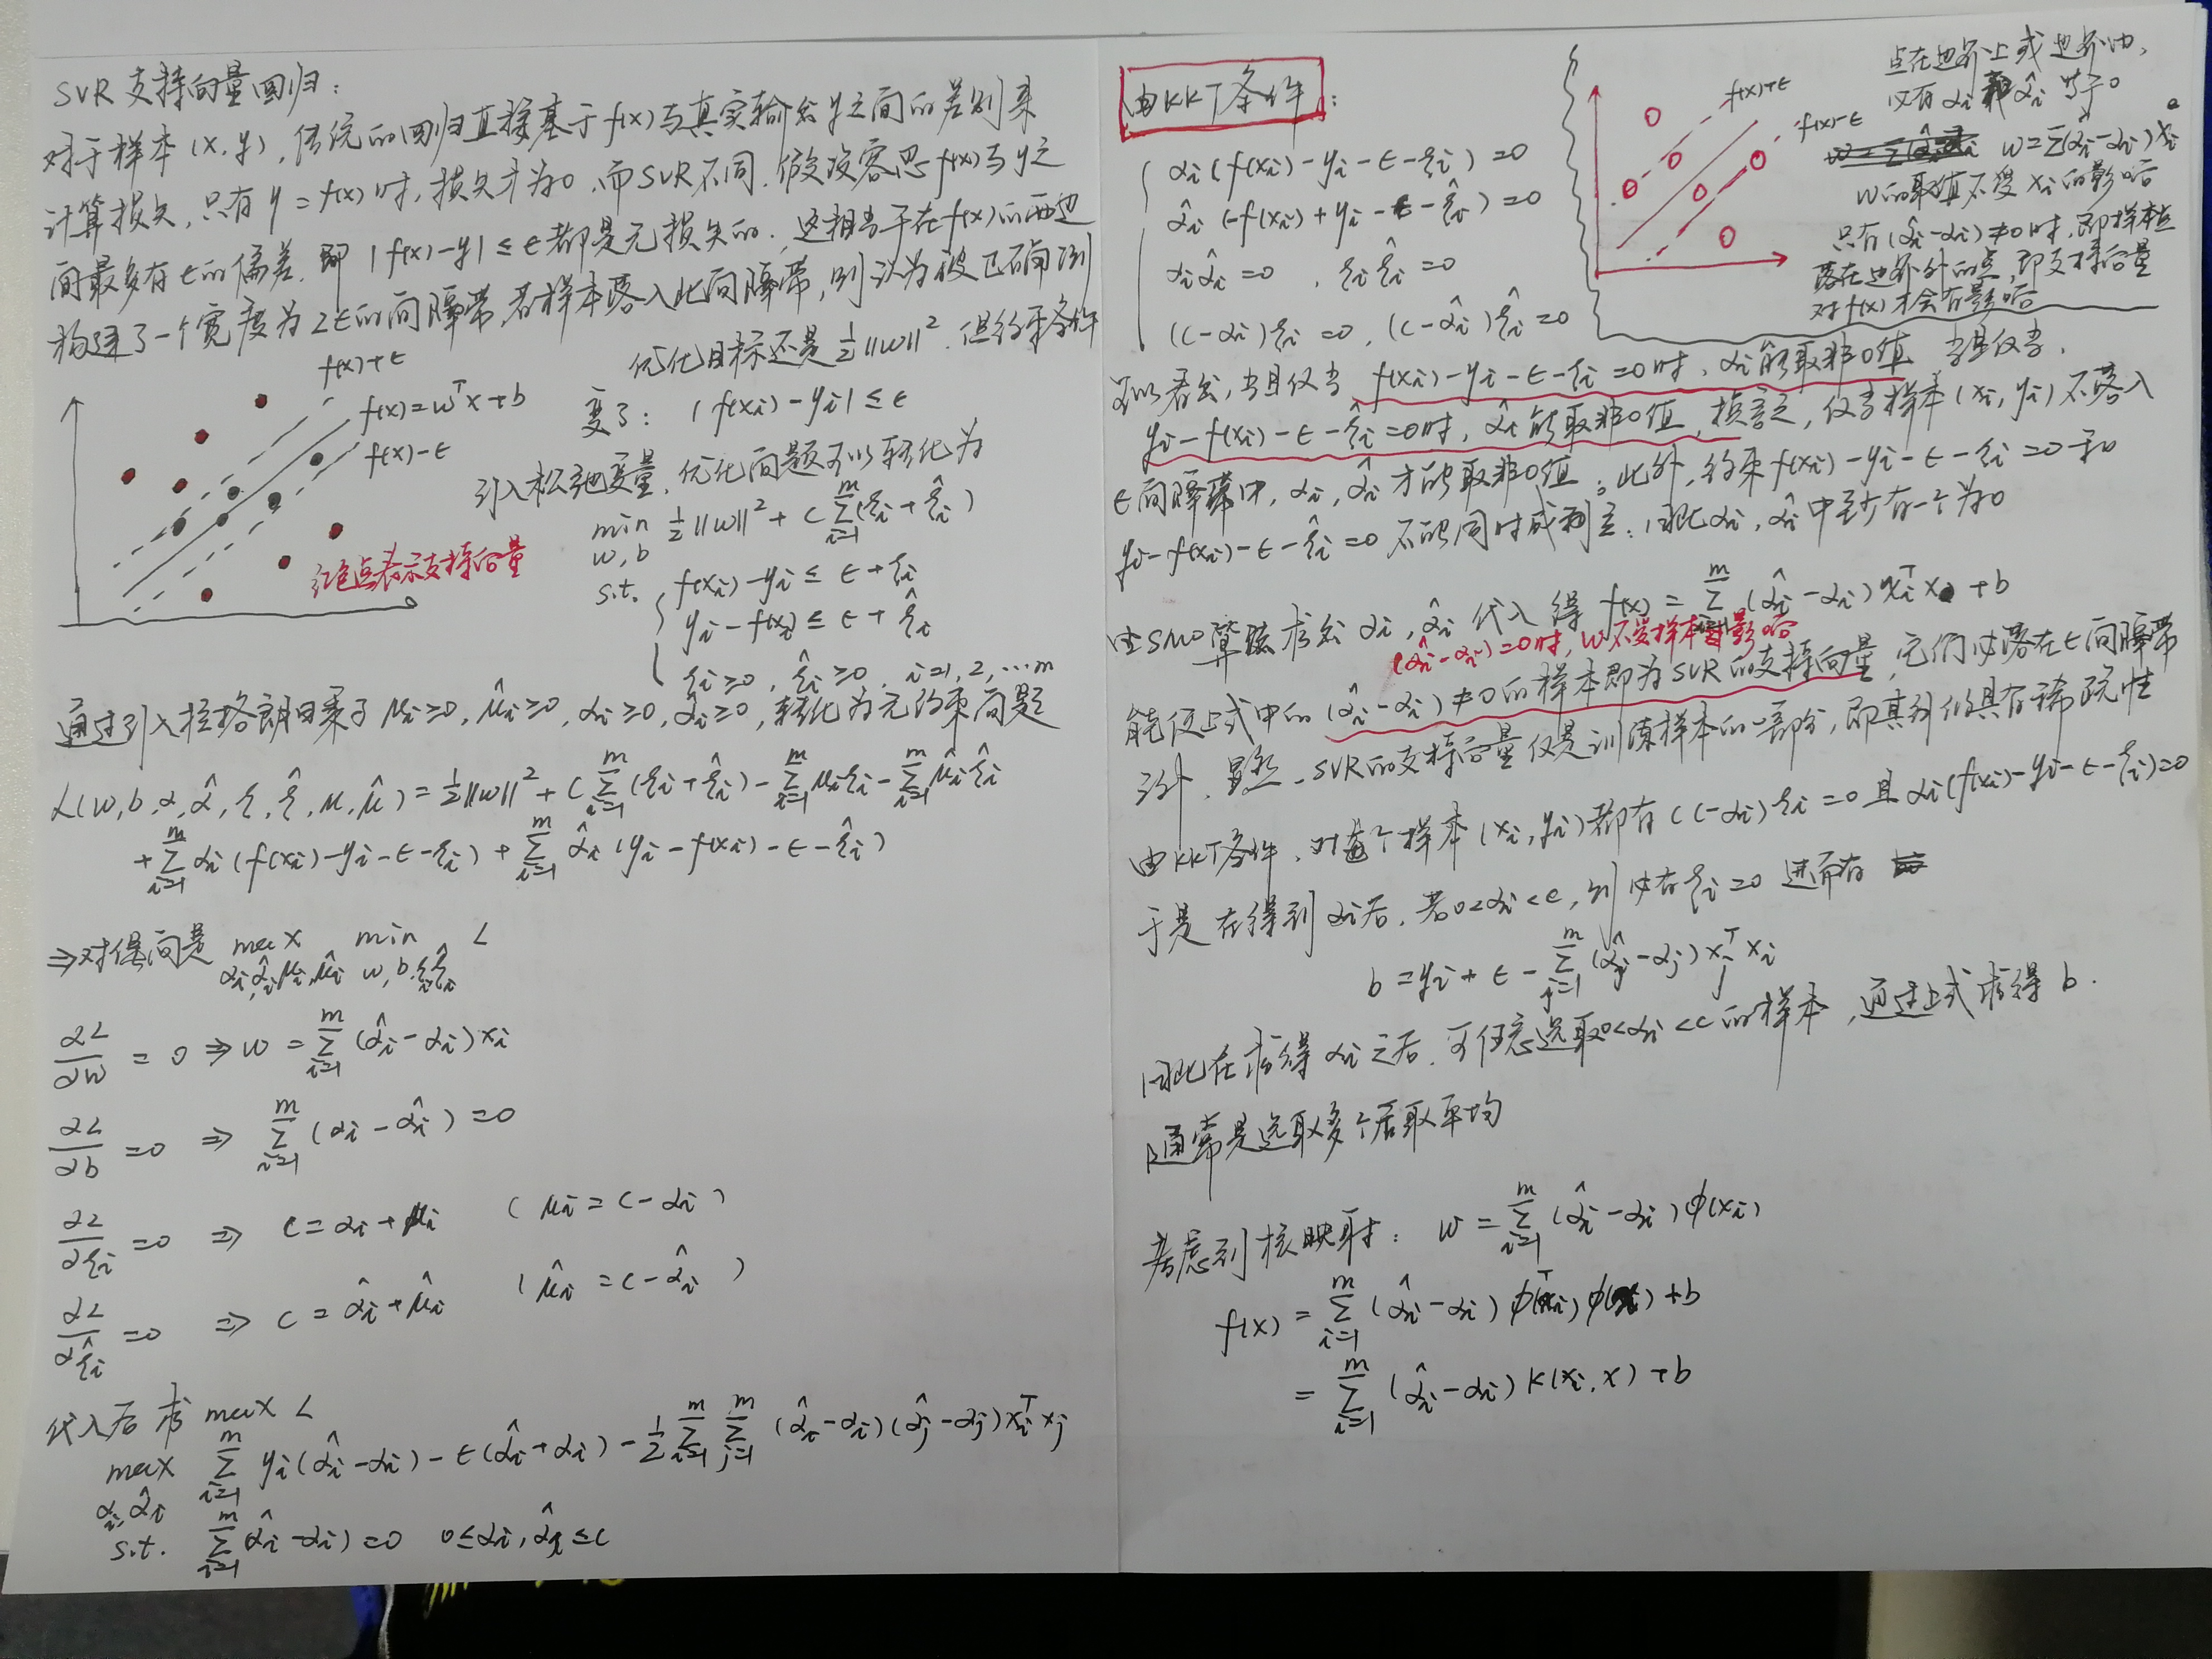 SVR 支持向量回归：
对于样本 (x, y)，传统的回归直接基于 f(x) 与真实输出 y 之间的差别来
计算损失，只有 y = f(x) 时，损失才为0，而SVR不同，假设容忍 f(x) 与 y 之
间最多有 ε 的偏差，即 |f(x)-y| ≤ ε 都是无损失的，这相当于在 f(x) 的两边
构建了一个宽度为 2ε 的间隔带，若样本落入此间隔带，则认为被正确预测
优化目标还是 ½||w||²，但约束条件
变了： |f(xi)-yi| ≤ ε
f(x)+ε
f(x)=wᵀx+b
f(x)-ε
红色点表示支持向量
引入松弛变量，优化问题可以转化为
min ½||w||² + C Σᵢ₌₁ᵐ(ξi + ξ̂i)
w,b
s.t. f(xi)-yi ≤ ε+ξi
yi-f(xi) ≤ ε+ξ̂i
ξi≥0, ξ̂i≥0, i=1,2,…m
通过引入拉格朗日乘子 μi≥0, μ̂i≥0, αi≥0, α̂i≥0, 转化为无约束问题
L(w,b,α,α̂,ξ,ξ̂,μ,μ̂) = ½||w||² + C Σᵢ₌₁ᵐ(ξi+ξ̂i) - Σᵢ₌₁ᵐ μiξi - Σᵢ₌₁ᵐ μ̂iξ̂i
+ Σᵢ₌₁ᵐ αi(f(xi)-yi-ε-ξi) + Σᵢ₌₁ᵐ α̂i(yi-f(xi)-ε-ξ̂i)
⇒对偶问题 max min L
αi,α̂i,μi,μ̂i w,b,ξi,ξ̂i
∂L/∂w = 0 ⇒ w = Σᵢ₌₁ᵐ(α̂i-αi)xi
∂L/∂b = 0 ⇒ Σᵢ₌₁ᵐ(αi-α̂i)=0
∂L/∂ξi = 0 ⇒ C=αi+μi (μi=C-αi)
∂L/∂ξ̂i = 0 ⇒ C=α̂i+μ̂i (μ̂i=C-α̂i)
代入后求 max L
max Σᵢ₌₁ᵐ yi(α̂i-αi)-ε(α̂i+αi) - ½ Σᵢ₌₁ᵐ Σⱼ₌₁ᵐ (α̂i-αi)(α̂j-αj)xiᵀxj
αi,α̂i
s.t. Σᵢ₌₁ᵐ(α̂i-αi)=0 0≤αi,α̂i≤C
由KKT条件：
αi(f(xi)-yi-ε-ξi)=0
α̂i(-f(xi)+yi-ε-ξ̂i)=0
αiα̂i=0, ξiξ̂i=0
(C-αi)ξi=0, (C-α̂i)ξ̂i=0
f(x)+ε
f(x)-ε
点在边界上或边界内，
必有 αi 和 α̂i 等于0
w=Σ(α̂i-αi)xi
w的取值不受 xi 的影响
只有(α̂i-αi)≠0时，即样本点
落在边界外的点，即支持向量
对f(x)才会有影响
可以看出，当且仅当 f(xi)-yi-ε-ξi=0时，αi能取非0值，当且仅当，
yi-f(xi)-ε-ξ̂i=0时，α̂i能取非0值，换言之，仅当样本(xi,yi)不落入
ε间隔带中，αi,α̂i才能取非0值；此外，约束f(xi)-yi-ε-ξi=0和
yi-f(xi)-ε-ξ̂i=0不能同时成立，因此αi,α̂i中至少有一个为0
由SMO算法求出αi,α̂i代入得 f(x)=Σᵢ₌₁ᵐ(α̂i-αi)xiᵀx+b
(α̂i-αi)=0时，w不受样本影响
能使上式中的(α̂i-αi)≠0的样本即为SVR的支持向量，它们必落在ε间隔带
之外，显然，SVR的支持向量仅是训练样本的一部分，即其解仍具有稀疏性
由KKT条件，对每个样本(xi,yi)都有(C-αi)ξi=0且αi(f(xi)-yi-ε-ξi)=0
于是在得到αi后，若0<αi<C，则必有ξi=0 进而有
b=yi+ε-Σⱼ₌₁ᵐ(α̂j-αj)xjᵀxi
因此在求得αi之后，可任意选取0<αi<C的样本，通过上式求得b.
通常是选取多个后取平均
考虑到核映射： w=Σᵢ₌₁ᵐ(α̂i-αi)φ(xi)
f(x)=Σᵢ₌₁ᵐ(α̂i-αi)φᵀ(xi)φ(x)+b
=Σᵢ₌₁ᵐ(α̂i-αi)K(xi,x)+b